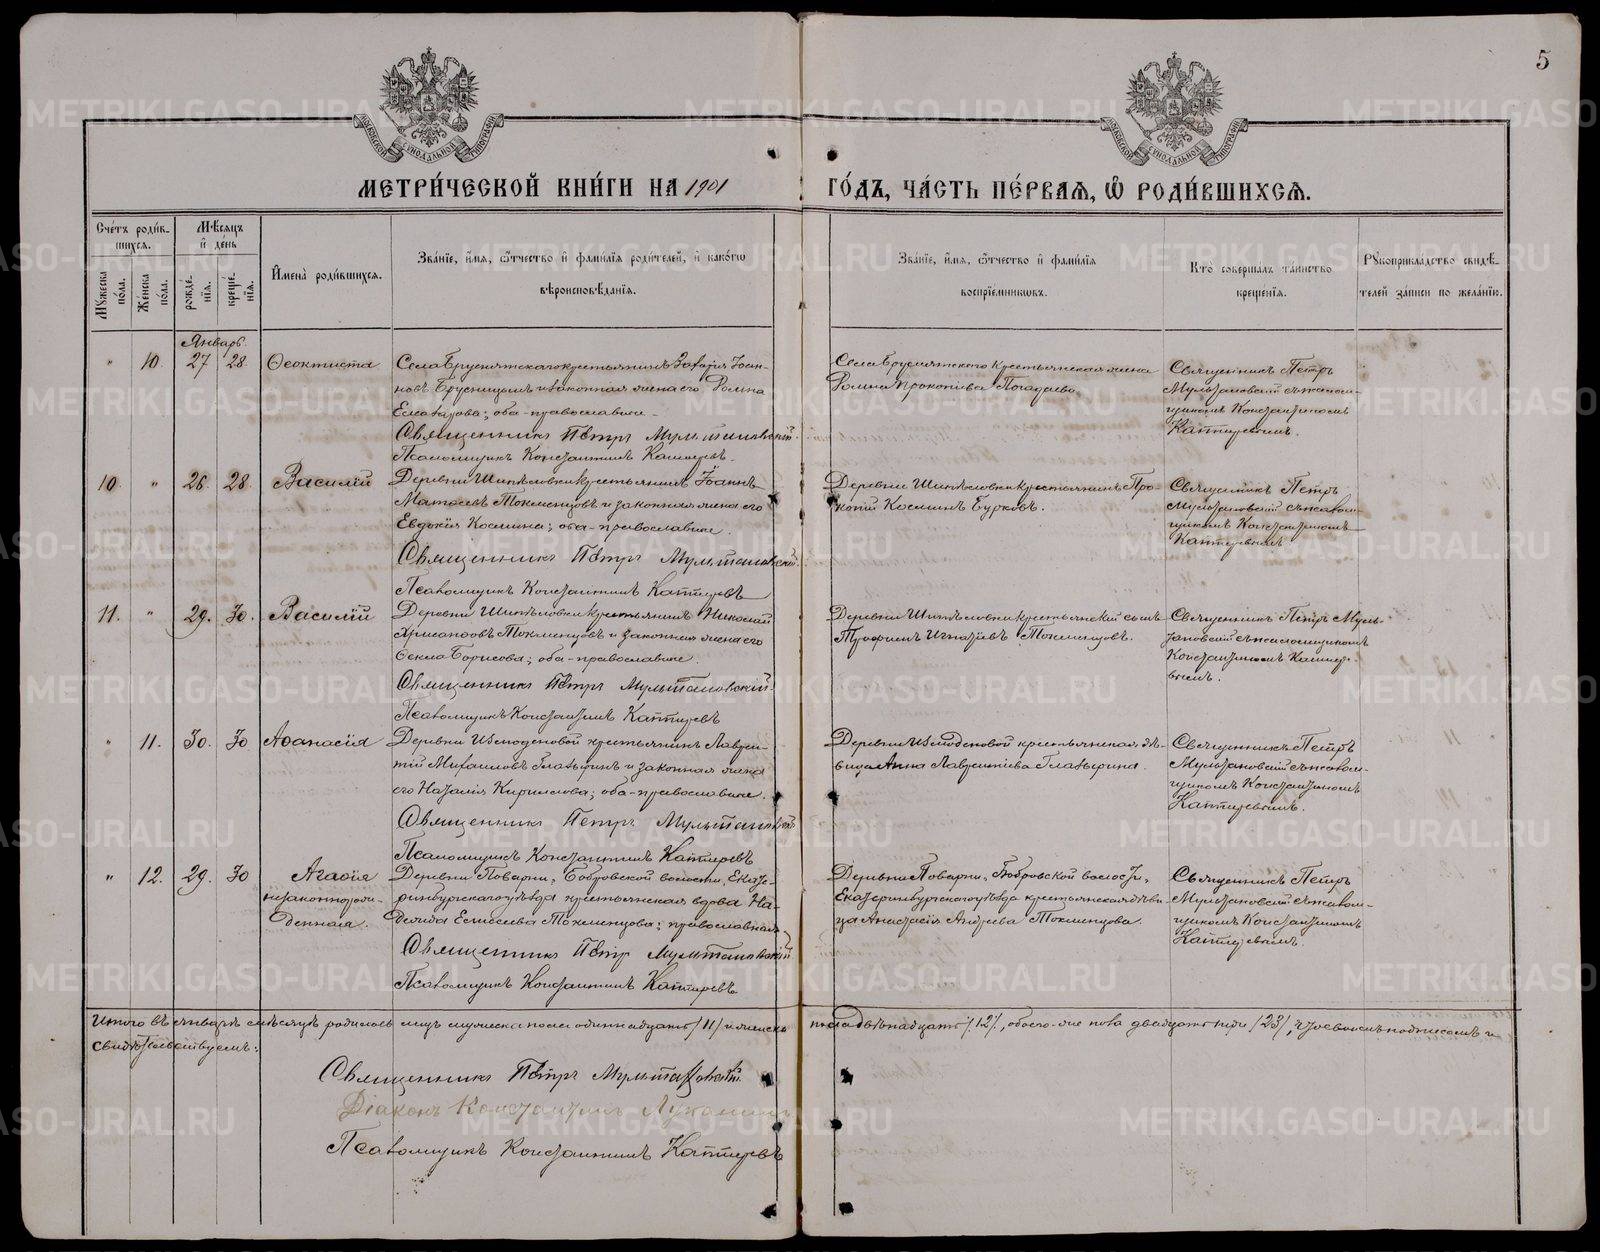 5
МОСКОВСКОЙ СѴНОДАЛЬНОЙ ТИПОГРАФІИ
МОСКОВСКОЙ СѴНОДАЛЬНОЙ ТИПОГРАФІИ
МЕТРИ́ЧЕСКОЙ КНИ́ГИ НА 1901 ГО́ДЪ, ЧА́СТЬ ПЕ́РВАѦ, Ѡ҆ РОДИ́ВШИХСѦ.
Сче́тъ роди́в-
шихся.
Мѣ́сяцъ
и҆ де́нь
Мꙋ́жеска по́ла.
Же́нска по́ла.
рожде́-нїя.
креще́-нїя.
И҆мена̀ роди́вшихся.
Зва́нїе, и҆́мя, ѻ҆́тчество и҆ фами́лїя роди́телей, и҆ како́гѡ
вѣроисповѣ́данїя.
Зва́нїе, и҆́мя, ѻ҆́тчество и҆ фами́лїя
воспрїе́мникѡвъ.
Кто̀ соверша́лъ та́инство
креще́нїя.
Рꙋкоприкла́дство свидѣ́-
телей за́писи по жела́нїю.
Январь.
" 10. 27 28 Ѳеоктиста
Села Брусянскаго крестьянинъ Захарія Іоан-
новъ Брусницынъ и законная жена его Ѳомна
Елеазарова; оба православные.
Священникъ Петръ Мультановскій
Псаломщикъ Константинъ Каптеревъ
Села Брусянскаго крестьянская жена
Прокопіева Погадаева.
Священникъ Петръ
Мультановскій съ псалом-
щикомъ Константиномъ
Каптеревымъ.
10. " 26. 28. Василій
Деревни Шипѣловки крестьянинъ Іоаннъ
Матѳеевъ Токменцовъ и законная жена его
Евдокія Косьмина; оба православные.
Священникъ Петръ Мультановскій
Псаломщикъ Константинъ Каптеревъ
Деревни Шипѣловки крестьянинъ Про-
копій Косминъ Бурковъ.
Священникъ Петръ
Мультановскій съ псалом-
щикомъ Константиномъ
Каптеревымъ
11. " 29. 30. Василій
Деревни Шипѣловки крестьянинъ Николай
Токменцовъ и законная жена его
Ѳекла Борисова; оба православные.
Священникъ Петръ Мультановскій
Псаломщикъ Константинъ Каптеревъ
Деревни Шипѣловки крестьянскій сынъ
Трофимъ Игнатіевъ Токменцовъ.
Священникъ Петръ Муль-
тановскій съ псаломщикомъ
Константиномъ Каптере-
вымъ.
" 11. 30. 30 Аѳанасія
Деревни крестьянинъ Лаврен-
тій Михаиловъ Глазыринъ и законная жена
его Наталія Кириллова; оба православные.
Священникъ Петръ Мультановскій
Псаломщикъ Константинъ Каптеревъ
Деревни крестьянская дѣ-
вица Анна Лаврентіева Глазырина.
Священникъ Петръ
Мультановскій съ псалом-
щикомъ Константиномъ
Каптеревымъ.
" 12. 29. 30 Агаѳія
незаконнорож-
денная.
Деревни Поварни, Бобровской волости, Екате-
ринбургскаго уѣзда крестьянская вдова На-
дежда Елисеева Токменцова; православная
Священникъ Петръ Мультановскій
Псаломщикъ Константинъ Каптеревъ
Деревни Поварни, Бобровской волости,
Екатеринбургскаго уѣзда крестьянская дѣви-
ца Анастасія Андреева Токменцова.
Священникъ Петръ
Мультановскій съ псалом-
щикомъ Константиномъ
Каптеревымъ.
Итого въ январѣ мѣсяцѣ родилось мужеска пола одиннадцать /11/ и женска пола двѣнадцать /12/, обоего же пола двадцать три /23/,
свидѣтельствуемъ:
Священникъ Петръ Мультановскій
Діаконъ Константинъ Луканинъ
Псаломщикъ Константинъ Каптеревъ
METRIKI.GASO-URAL.RU